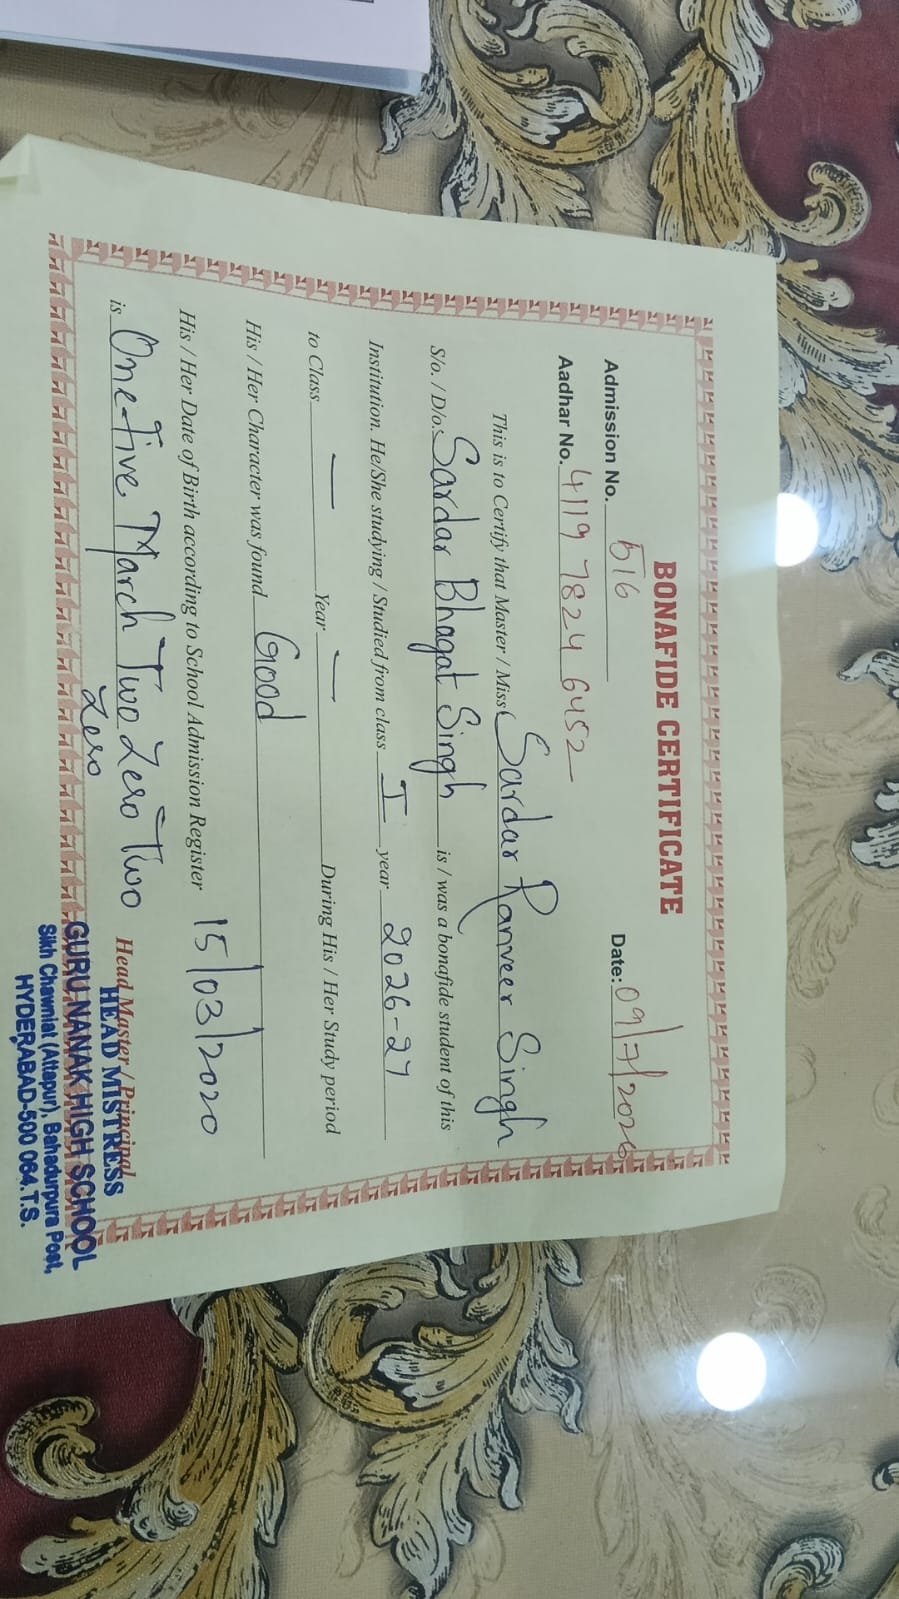 BONAFIDE CERTIFICATE
Admission No. 516 Date: 09/7/2026
Aadhar No. 4119 7824 6452
This is to Certify that Master / Miss Sardar Ranveer Singh
S/o. / D/o. Sardar Bhagat Singh is / was a bonafide student of this
Institution. He/She studying / Studied from class I year 2026-27
to Class — Year — During His / Her Study period
His / Her Character was found Good
His / Her Date of Birth according to School Admission Register 15/03/2020
is One Five March Two Zero Two
Zero
Head Master / Principal
HEAD MISTRESS
GURU NANAK HIGH SCHOOL
Sikh Chawniat (Attapur), Bahadurpura Post,
HYDERABAD-500 064.T.S.